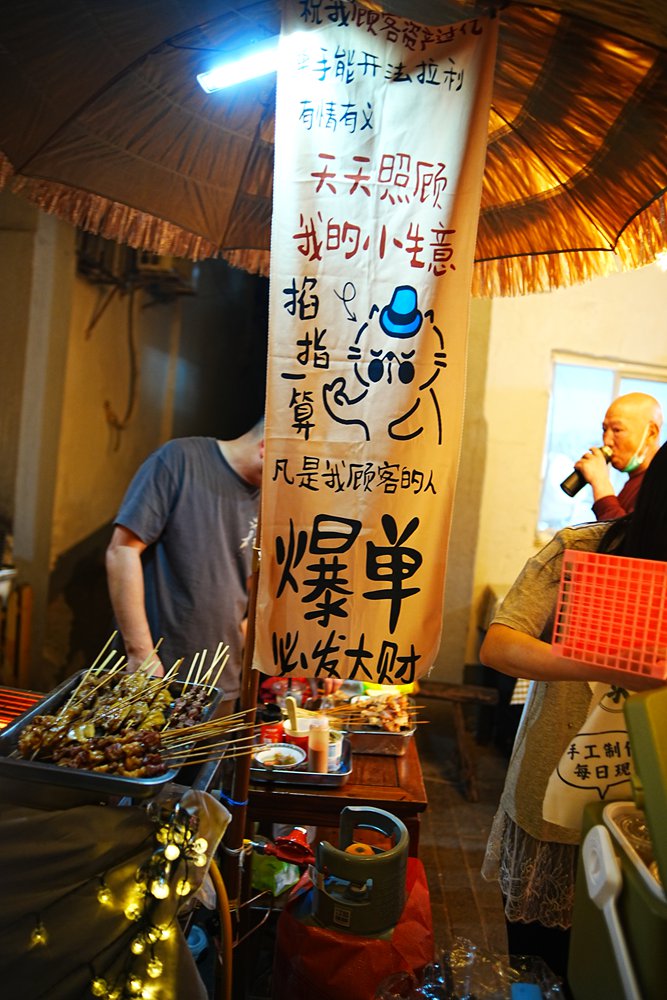 祝我顾客资产过亿
单手能开法拉利
有情有义
天天照顾
我的小生意
掐
指
一
算
凡是我顾客的人
爆单
必发大财
手工制
每日现